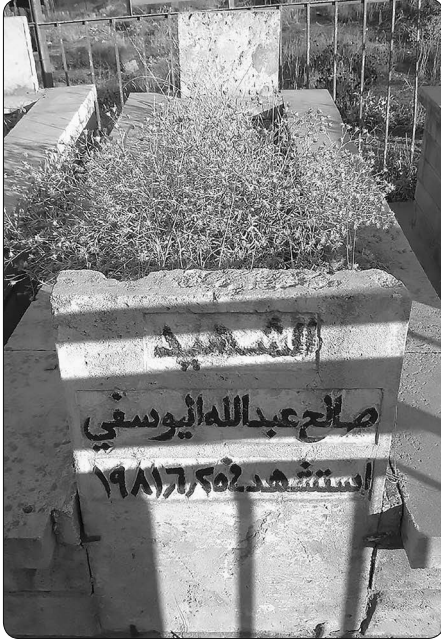 الشهيد
صالح عبدالله اليوسفي
استشهد ١٩٨١/٦/٢٥